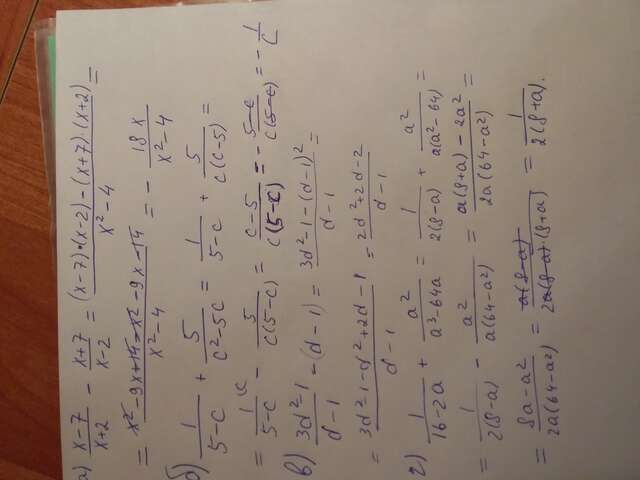 а) (x-7)/(x+2) - (x+7)/(x-2) = ((x-7)·(x-2)-(x+7)·(x+2))/(x²-4) =
= (x²-9x+14-x²-9x-14)/(x²-4) = - 18x/(x²-4)
б) 1/(5-c) + 5/(c²-5c) = 1/(5-c) + 5/(c(c-5)) =
= 1/(5-c) \c - 5/(c(5-c)) = (c-5)/(c(5-c)) = - (5-c)/(c(5-c)) = - 1/c
в) (3d²-1)/(d-1) - (d-1) = (3d²-1-(d-1)²)/(d-1) =
= (3d²-1-d²+2d-1)/(d-1) = (2d²+2d-2)/(d-1)
г) 1/(16-2a) + a²/(a³-64a) = 1/(2(8-a)) + a²/(a(a²-64)) =
= 1/(2(8-a)) - a²/(a(64-a²)) = (a(8+a)-2a²)/(2a(64-a²)) =
= (8a-a²)/(2a(64-a²)) = (a(8-a))/(2a(8-a)·(8+a)) = 1/(2(8+a)).